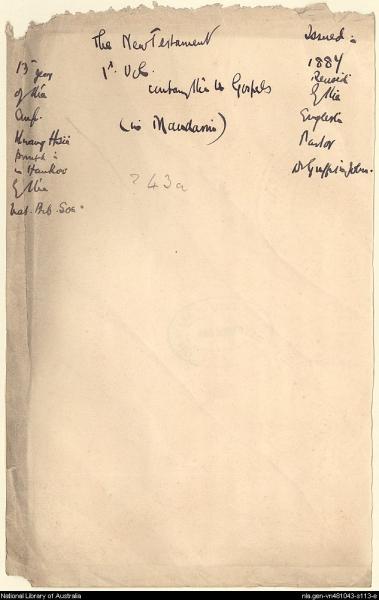 The New Testament
1st Vol.
containing the 4 Gospels
(in Mandarin)
Issued in
1887
Revised
by the
English
Pastor
Dr Griffith John.
13th year
of the
Emp.
Kwang Hsü
printed in
in Hankow
by the
Nat. Bib. Soc.
? 43a
National Library of Australia
nla.gen-vn481043-s113-e